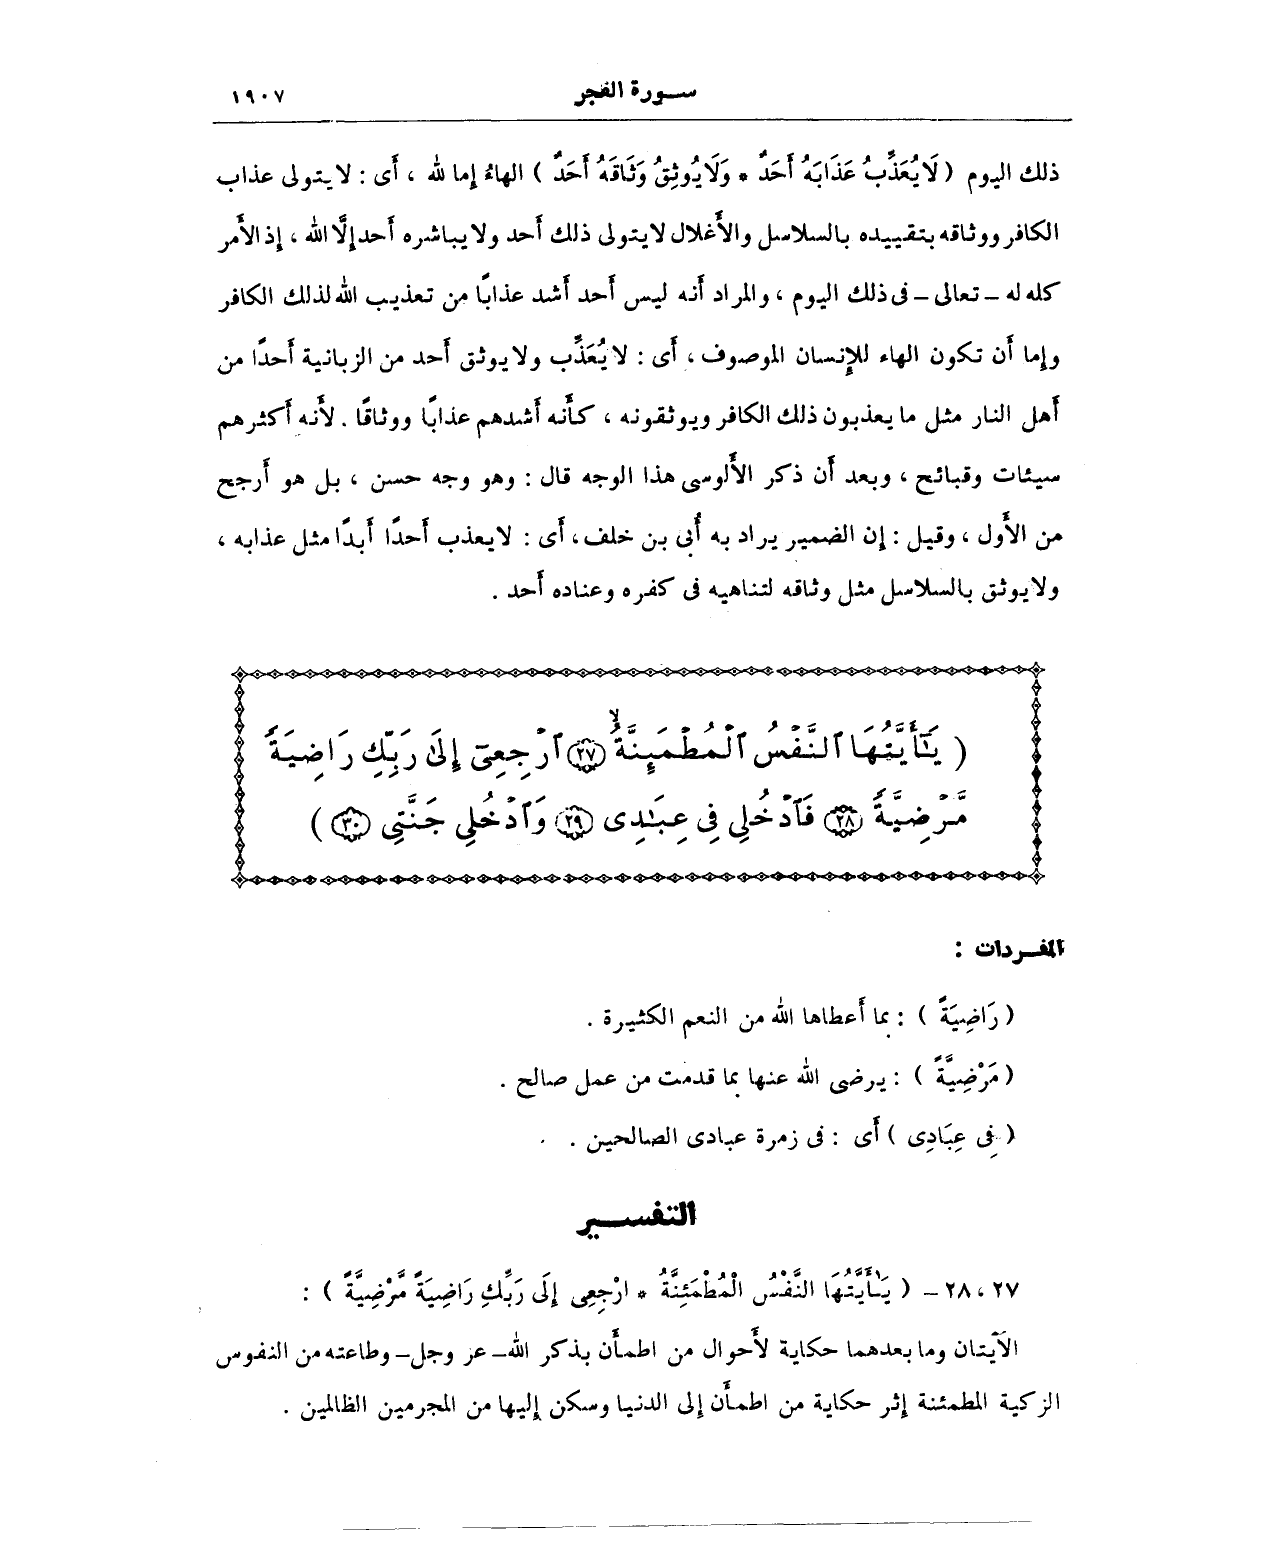 سورة الفجر ١٩٠٧
ذلك اليوم ( لَا يُعَذِّبُ عَذَابَهُ أَحَدٌ * وَلَا يُوثِقُ وَثَاقَهُ أَحَدٌ ) الهاءُ إما لله ، أَى : لا يتولى عذاب
الكافر ووثاقه بتقييده بالسلاسل والأَغلال لا يتولى ذلك أَحد ولا يباشره أَحد إِلَّا الله ، إِذ الأَمر
كله له - تعالى - فى ذلك اليوم ، والمراد أَنه ليس أَحد أَشد عذابًا من تعذيب الله لذلك الكافر
وإِما أَن تكون الهاء للإِنسان الموصوف ، أَى : لا يُعَذِّب ولا يوثق أَحد من الزبانية أَحدًا من
أَهل النار مثل ما يعذبون ذلك الكافر ويوثقونه ، كأَنه أَشدهم عذابًا ووثاقًا . لأَنه أَكثرهم
سيئات وقبائح ، وبعد أَن ذكر الأَلوسى هذا الوجه قال : وهو وجه حسن ، بل هو أَرجح
من الأَول ، وقيل : إِن الضمير يراد به أُبى بن خلف ، أَى : لا يعذب أَحدًا أَبدًا مثل عذابه ،
ولا يوثق بالسلاسل مثل وثاقه لتناهيه فى كفره وعناده أَحد .
( يَٰٓأَيَّتُهَا ٱلنَّفۡسُ ٱلۡمُطۡمَئِنَّةُ ۙ ٢٧ ٱرۡجِعِىٓ إِلَىٰ رَبِّكِ رَاضِيَةً
مَّرۡضِيَّةً ٢٨ فَٱدۡخُلِى فِى عِبَٰدِى ٢٩ وَٱدۡخُلِى جَنَّتِى ٣٠ )
المفردات :
( رَاضِيَةً ) : بما أَعطاها الله من النعم الكثيرة .
( مَرْضِيَّةً ) : يرضى الله عنها بما قدمت من عمل صالح .
( فِى عِبَادِى ) أَى : فى زمرة عبادى الصالحين .
التفسير
٢٧ ، ٢٨ - ( يَٰأَيَّتُهَا النَّفْسُ الْمُطْمَئِنَّةُ * ارْجِعِى إِلَى رَبِّكِ رَاضِيَةً مَّرْضِيَّةً ) :
الآيتان وما بعدهما حكاية لأَحوال من اطمأَن بذكر الله - عز وجل - وطاعته من النفوس
الزكية المطمئنة إِثر حكاية من اطمأَن إِلى الدنيا وسكن إِليها من المجرمين الظالمين .